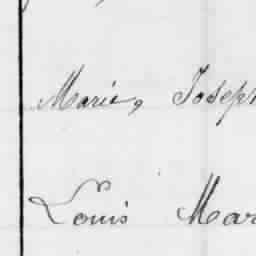 Marie, Joseph
Louis Mar